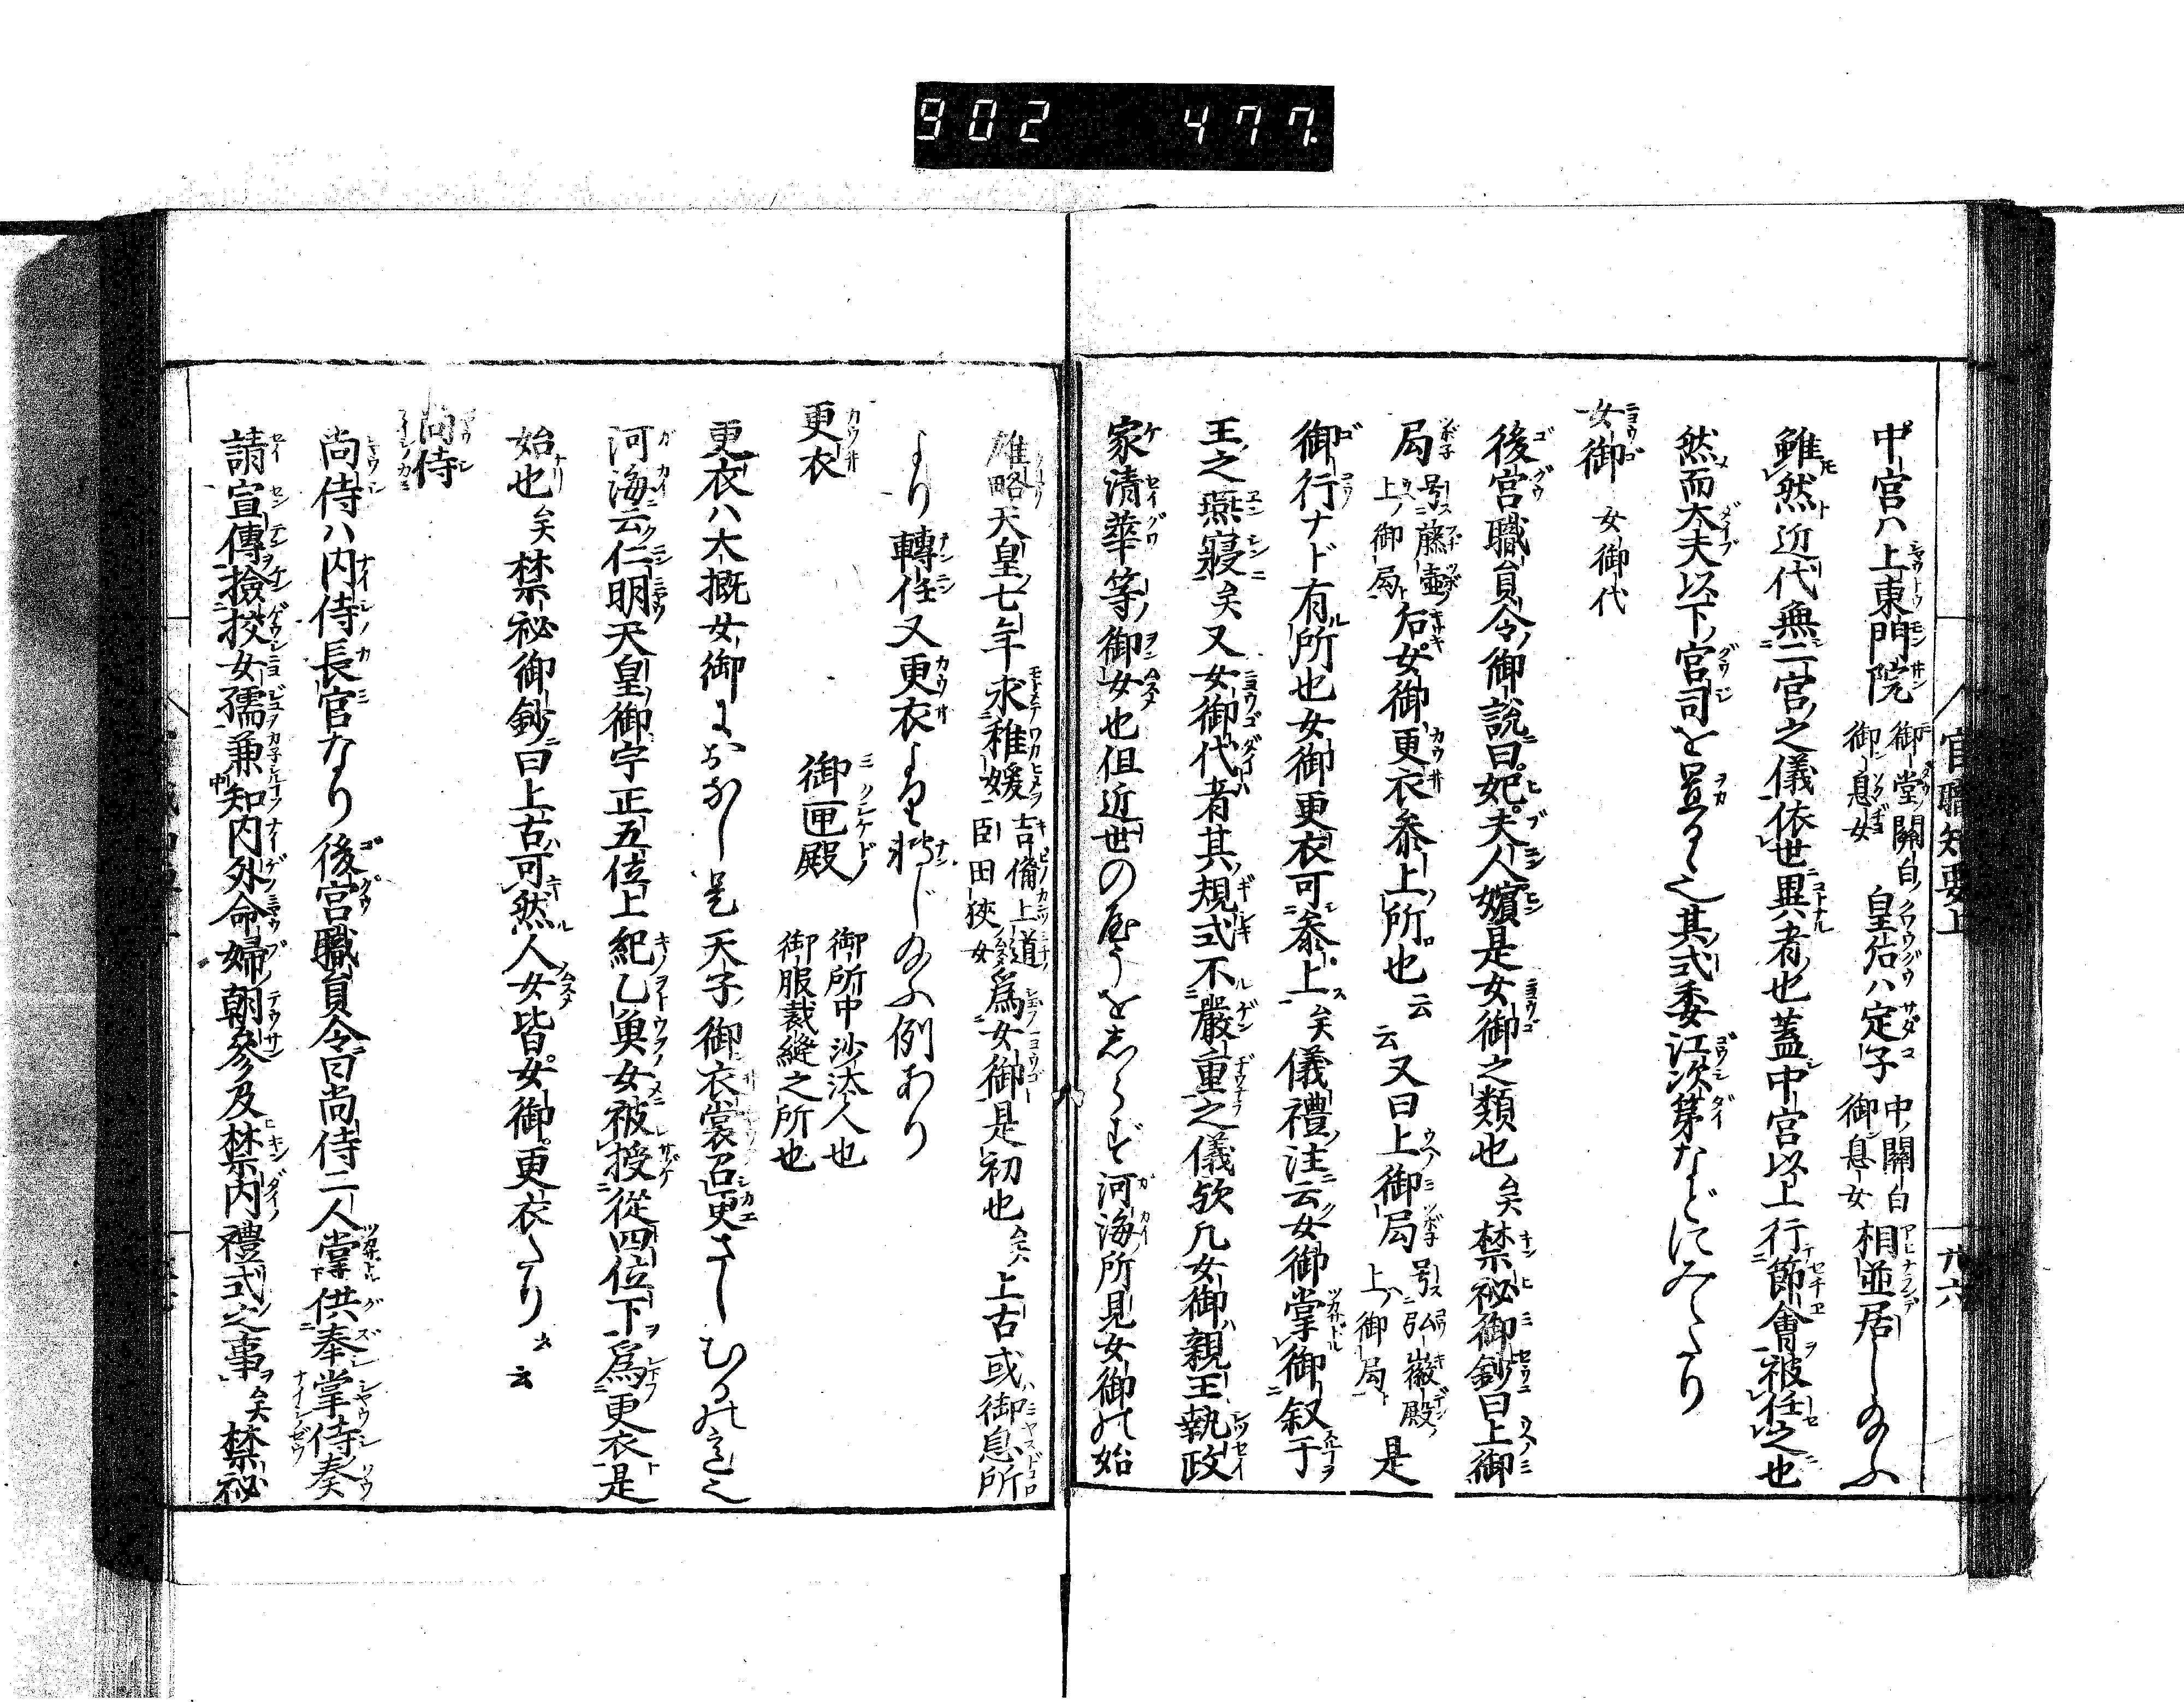 902 477.
官職知要上
中宮ハ上東門院御堂關白御息女皇后ハ定子中關白御息女相並居し給ふ
雖然近代無二官之儀依世異者也蓋中宮以上行節會被任之也
然而大夫以下宮司を置るゝ之其式委江次第などにみへたり
女御 女御代
後宮職員令御説曰妃夫人嬪是女御之類也矣禁祕御鈔曰上御
局号藤壺上御局后女御更衣参上所也云云又曰上御局号弘徽殿上御局是
御行ナド有所也女御更衣可参上矣儀禮注云女御掌御叙于
王之燕寢矣又女御代者其規式不嚴重之儀欤凡女御親王執政
家清華等御女也但近世のやうをしらず河海所見女御の始
雄略天皇七年求稚媛吉備上道臣田狹女爲女御是初也矣上古或御息所
より轉任又更衣より轉じ給ふ例あり
更衣 御匣殿 御所中沙汰人也御服裁縫之所也
更衣ハ大概女御におなし是天子御衣裳召更さしむるのれ之
河海云仁明天皇御宇正五位上紀乙魚女被授從四位下爲更衣是
始也矣禁祕御鈔曰上古可然人女皆女御更衣たり云云
尚侍
尚侍ハ内侍長官なり後宮職員令曰尚侍二人掌供奉掌侍奏
請宣傳撿挍女孺兼知内外命婦朝參及禁内禮式之事矣禁祕